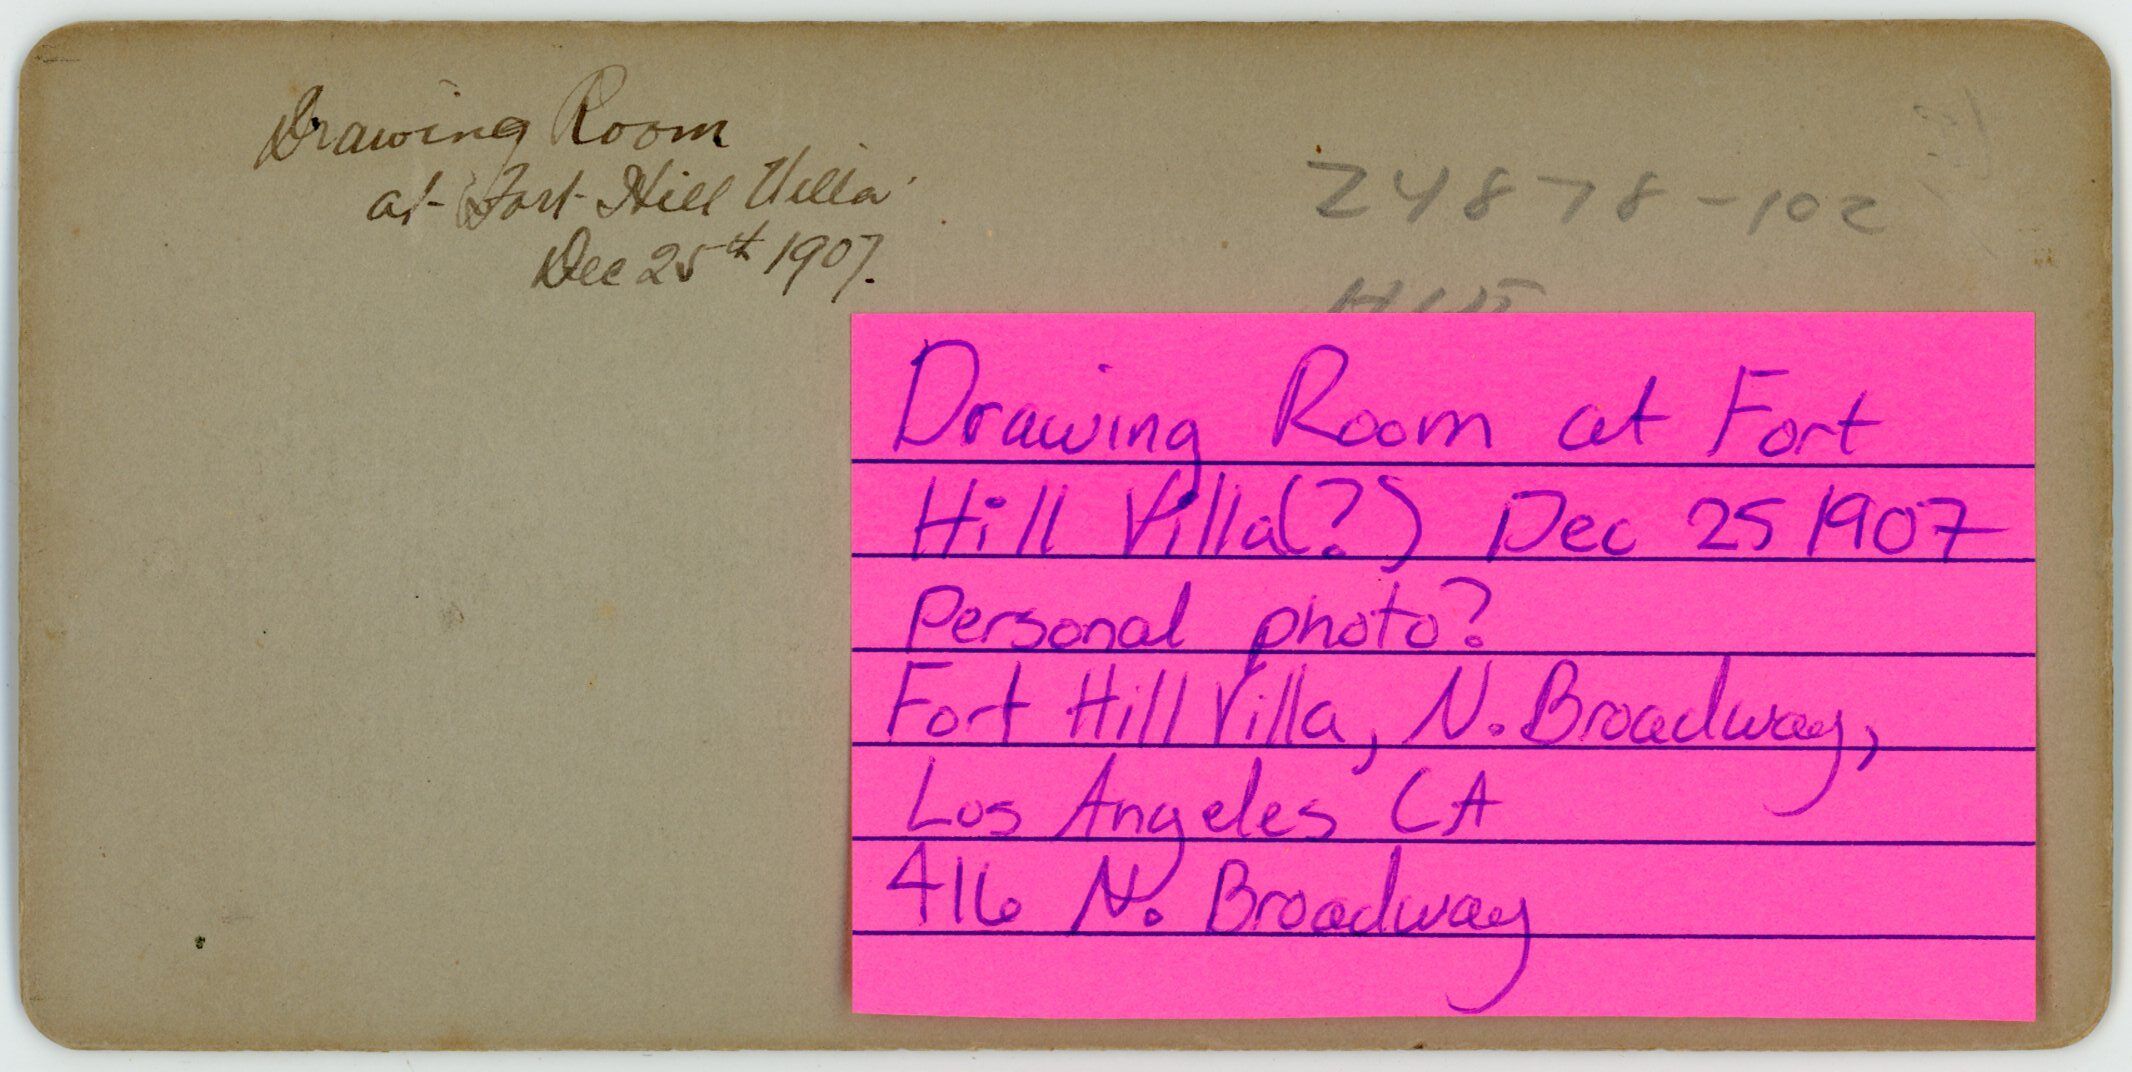 Drawing Room
at Fort Hill Villa
Dec 25th 1907.
24878-102
Drawing Room at Fort
Hill Villa(?) Dec 25 1907
Personal photo?
Fort Hill Villa, N. Broadway,
Los Angeles CA
416 N. Broadway